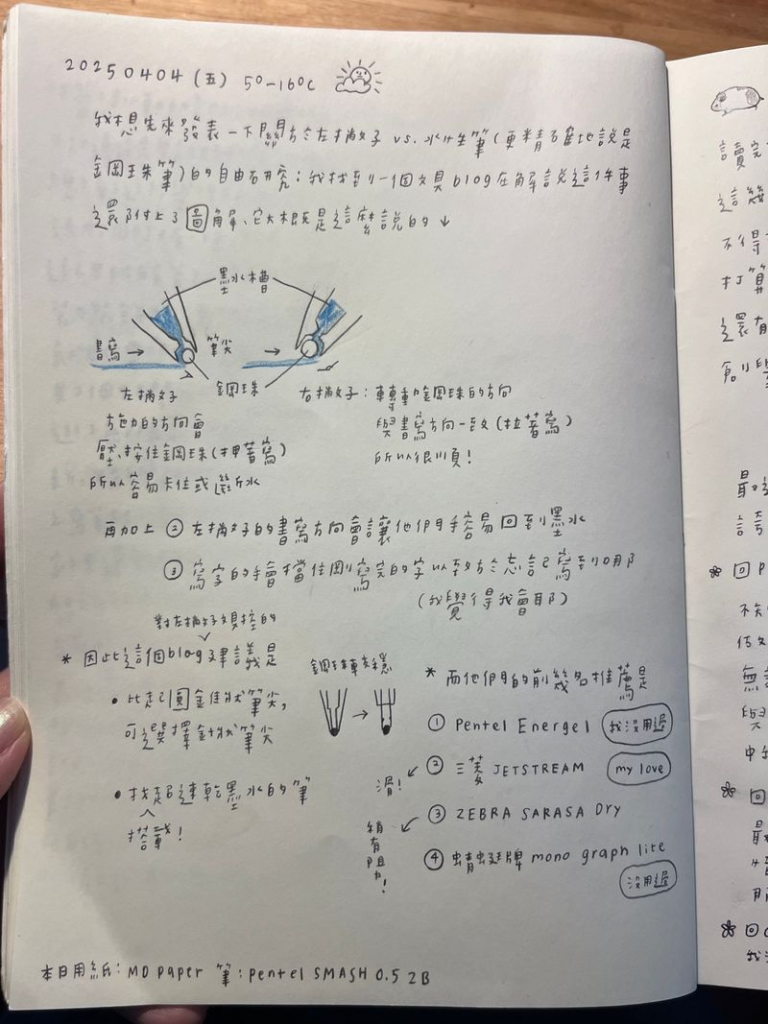 20250404 (五) 5°-16°C
我想先來發表一下關於左撇子 vs. 水性筆(更精確地說是
鋼珠筆)的自由研究:我找到一個文具blog在解說這件事
還附上了圖解、它大概是這麼說的↓
墨水槽
書寫→ 筆尖 →
左撇子 鋼珠 右撇子:轉動鋼珠的方向
施力的方向會 與書寫方向一致(拉著寫)
壓、按住鋼珠(押著寫) 所以很順!
所以容易卡住或斷水
再加上 ② 左撇子的書寫方向會讓他們手容易回到墨水
③ 寫字的手會擋住剛寫完的字以致於忘記寫到哪
(我覺得我會耶)
對左撇子親控的
* 因此這個blog建議是
• 比起圓錐狀筆尖,
可選擇針狀筆尖
• 找起速乾墨水的筆
搭載!
鋼珠較穩
* 而他們的前幾名推薦是
① Pentel Energel 我沒用過
② 三菱 JETSTREAM my love
滑!
③ ZEBRA SARASA Dry
稍有阻力!
④ 蜻蜓牌 mono graph lite
沒用過
本日用紙:MD paper 筆:pentel SMASH 0.5 2B
讀完
這幾
不得
打算
還有
創